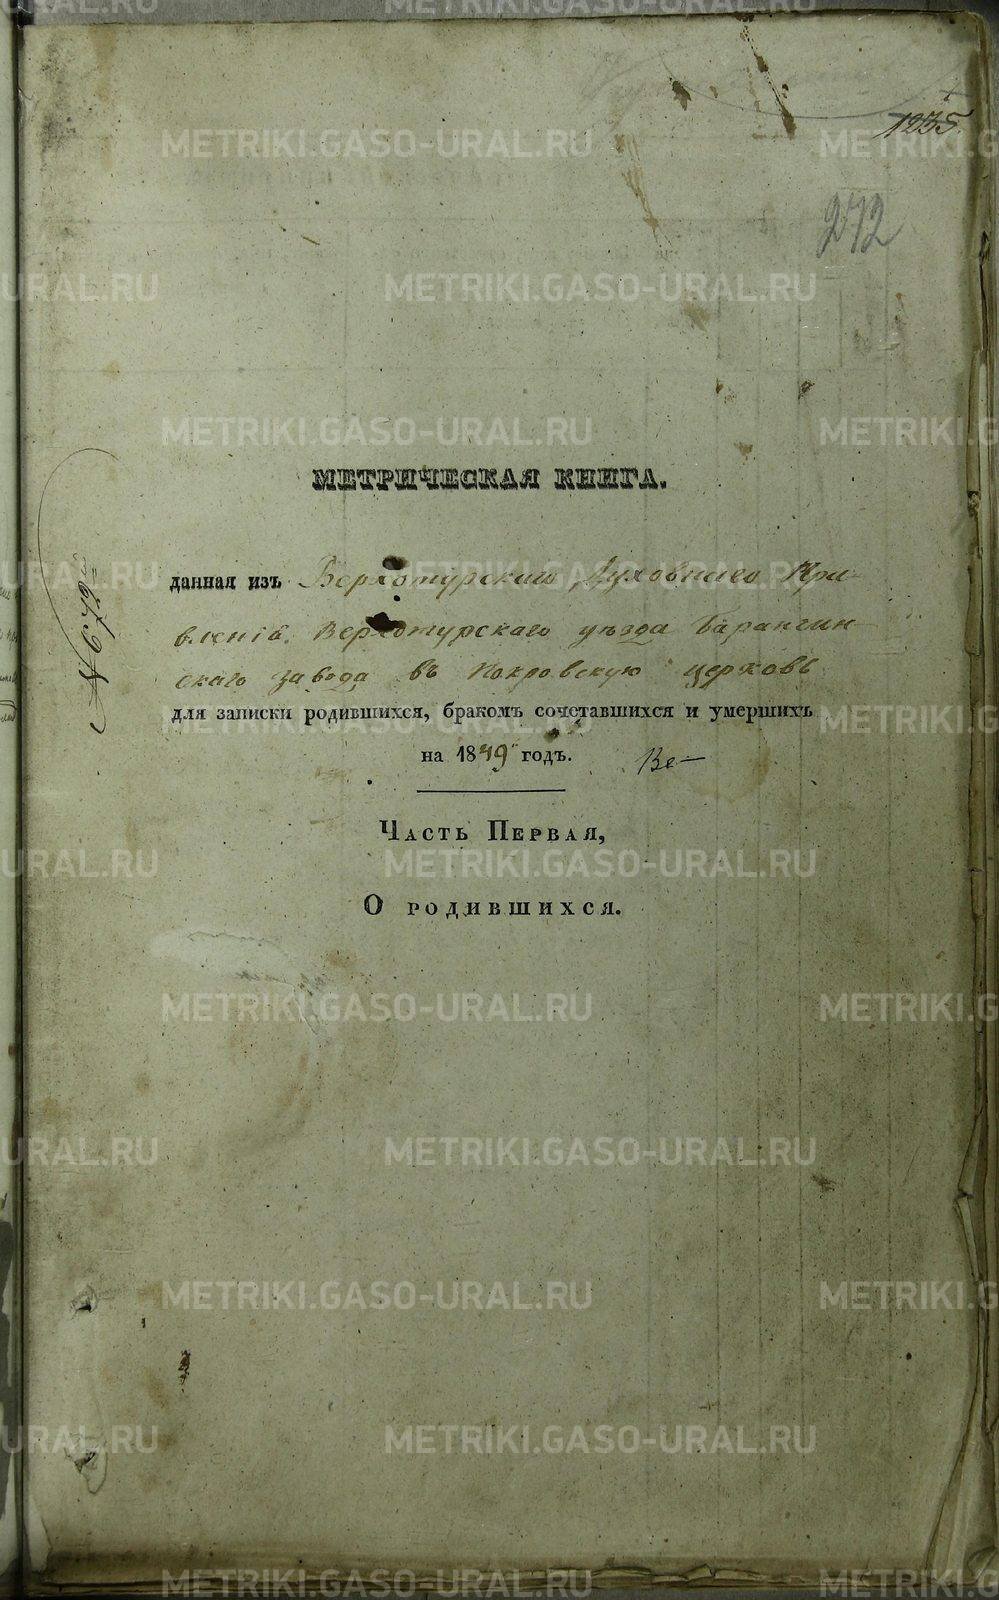 1235.
272
МЕТРИЧЕСКАЯ КНИГА.
№ 672й
данная изъ Верхотурскаго Духовнаго Пра-
вленія Верхотурскаго уезда Барангин-
скаго завода въ Покровскую церковь
для записки родившихся, бракомъ сочетавшихся и умершихъ
на 1849 годъ.
Ве-
Часть Первая,
О родившихся.
METRIKI.GASO-URAL.RU